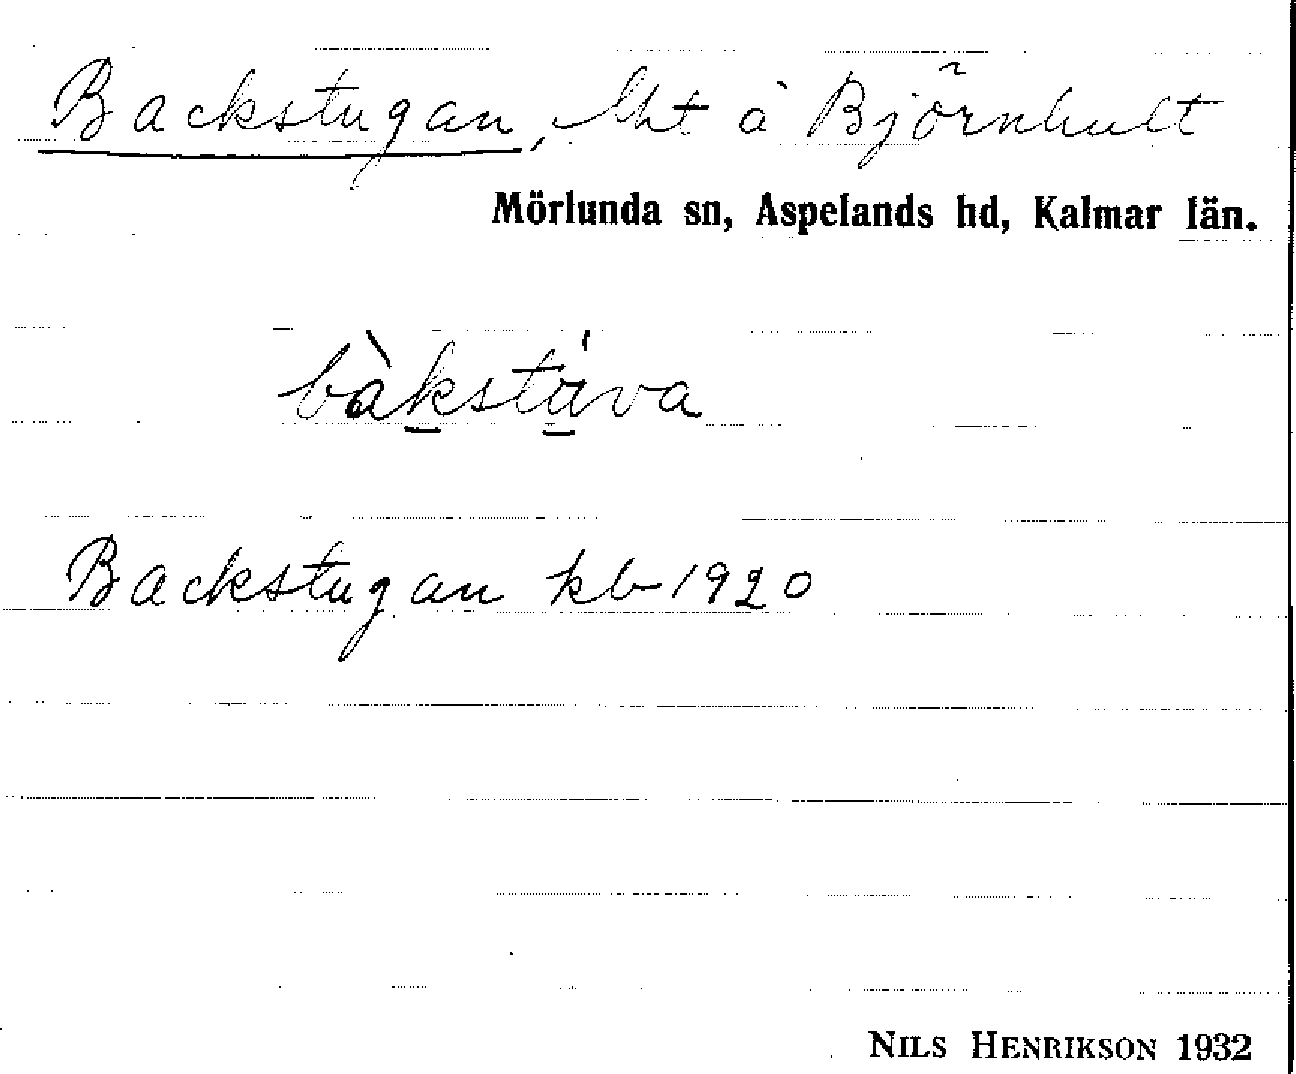 Backstugan, lht å Björnhult
Mörlunda sn, Aspelands hd, Kalmar län.
bàkstáva
Backstugan kb 1920
NILS HENRIKSON 1932